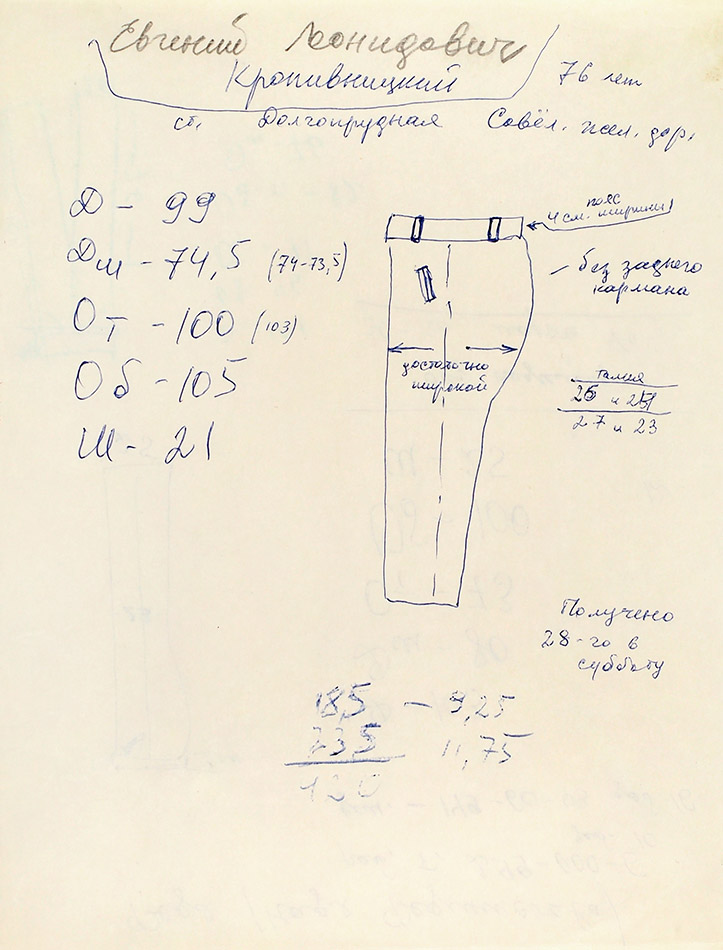 Евгений Леонидович
Кропивницкий
76 лет
ст. Долгопрудная Савёл. жел. дор.
Д - 99
Дш - 74,5 (74-73,5)
От - 100 (103)
Об - 105
Ш - 21
пояс
4 см. ширины
без заднего
кармана
достаточно
широкой
талия
и
27 и 23
Получено
28-го в
субботу
18,5 - 9,25
23,5 11,75